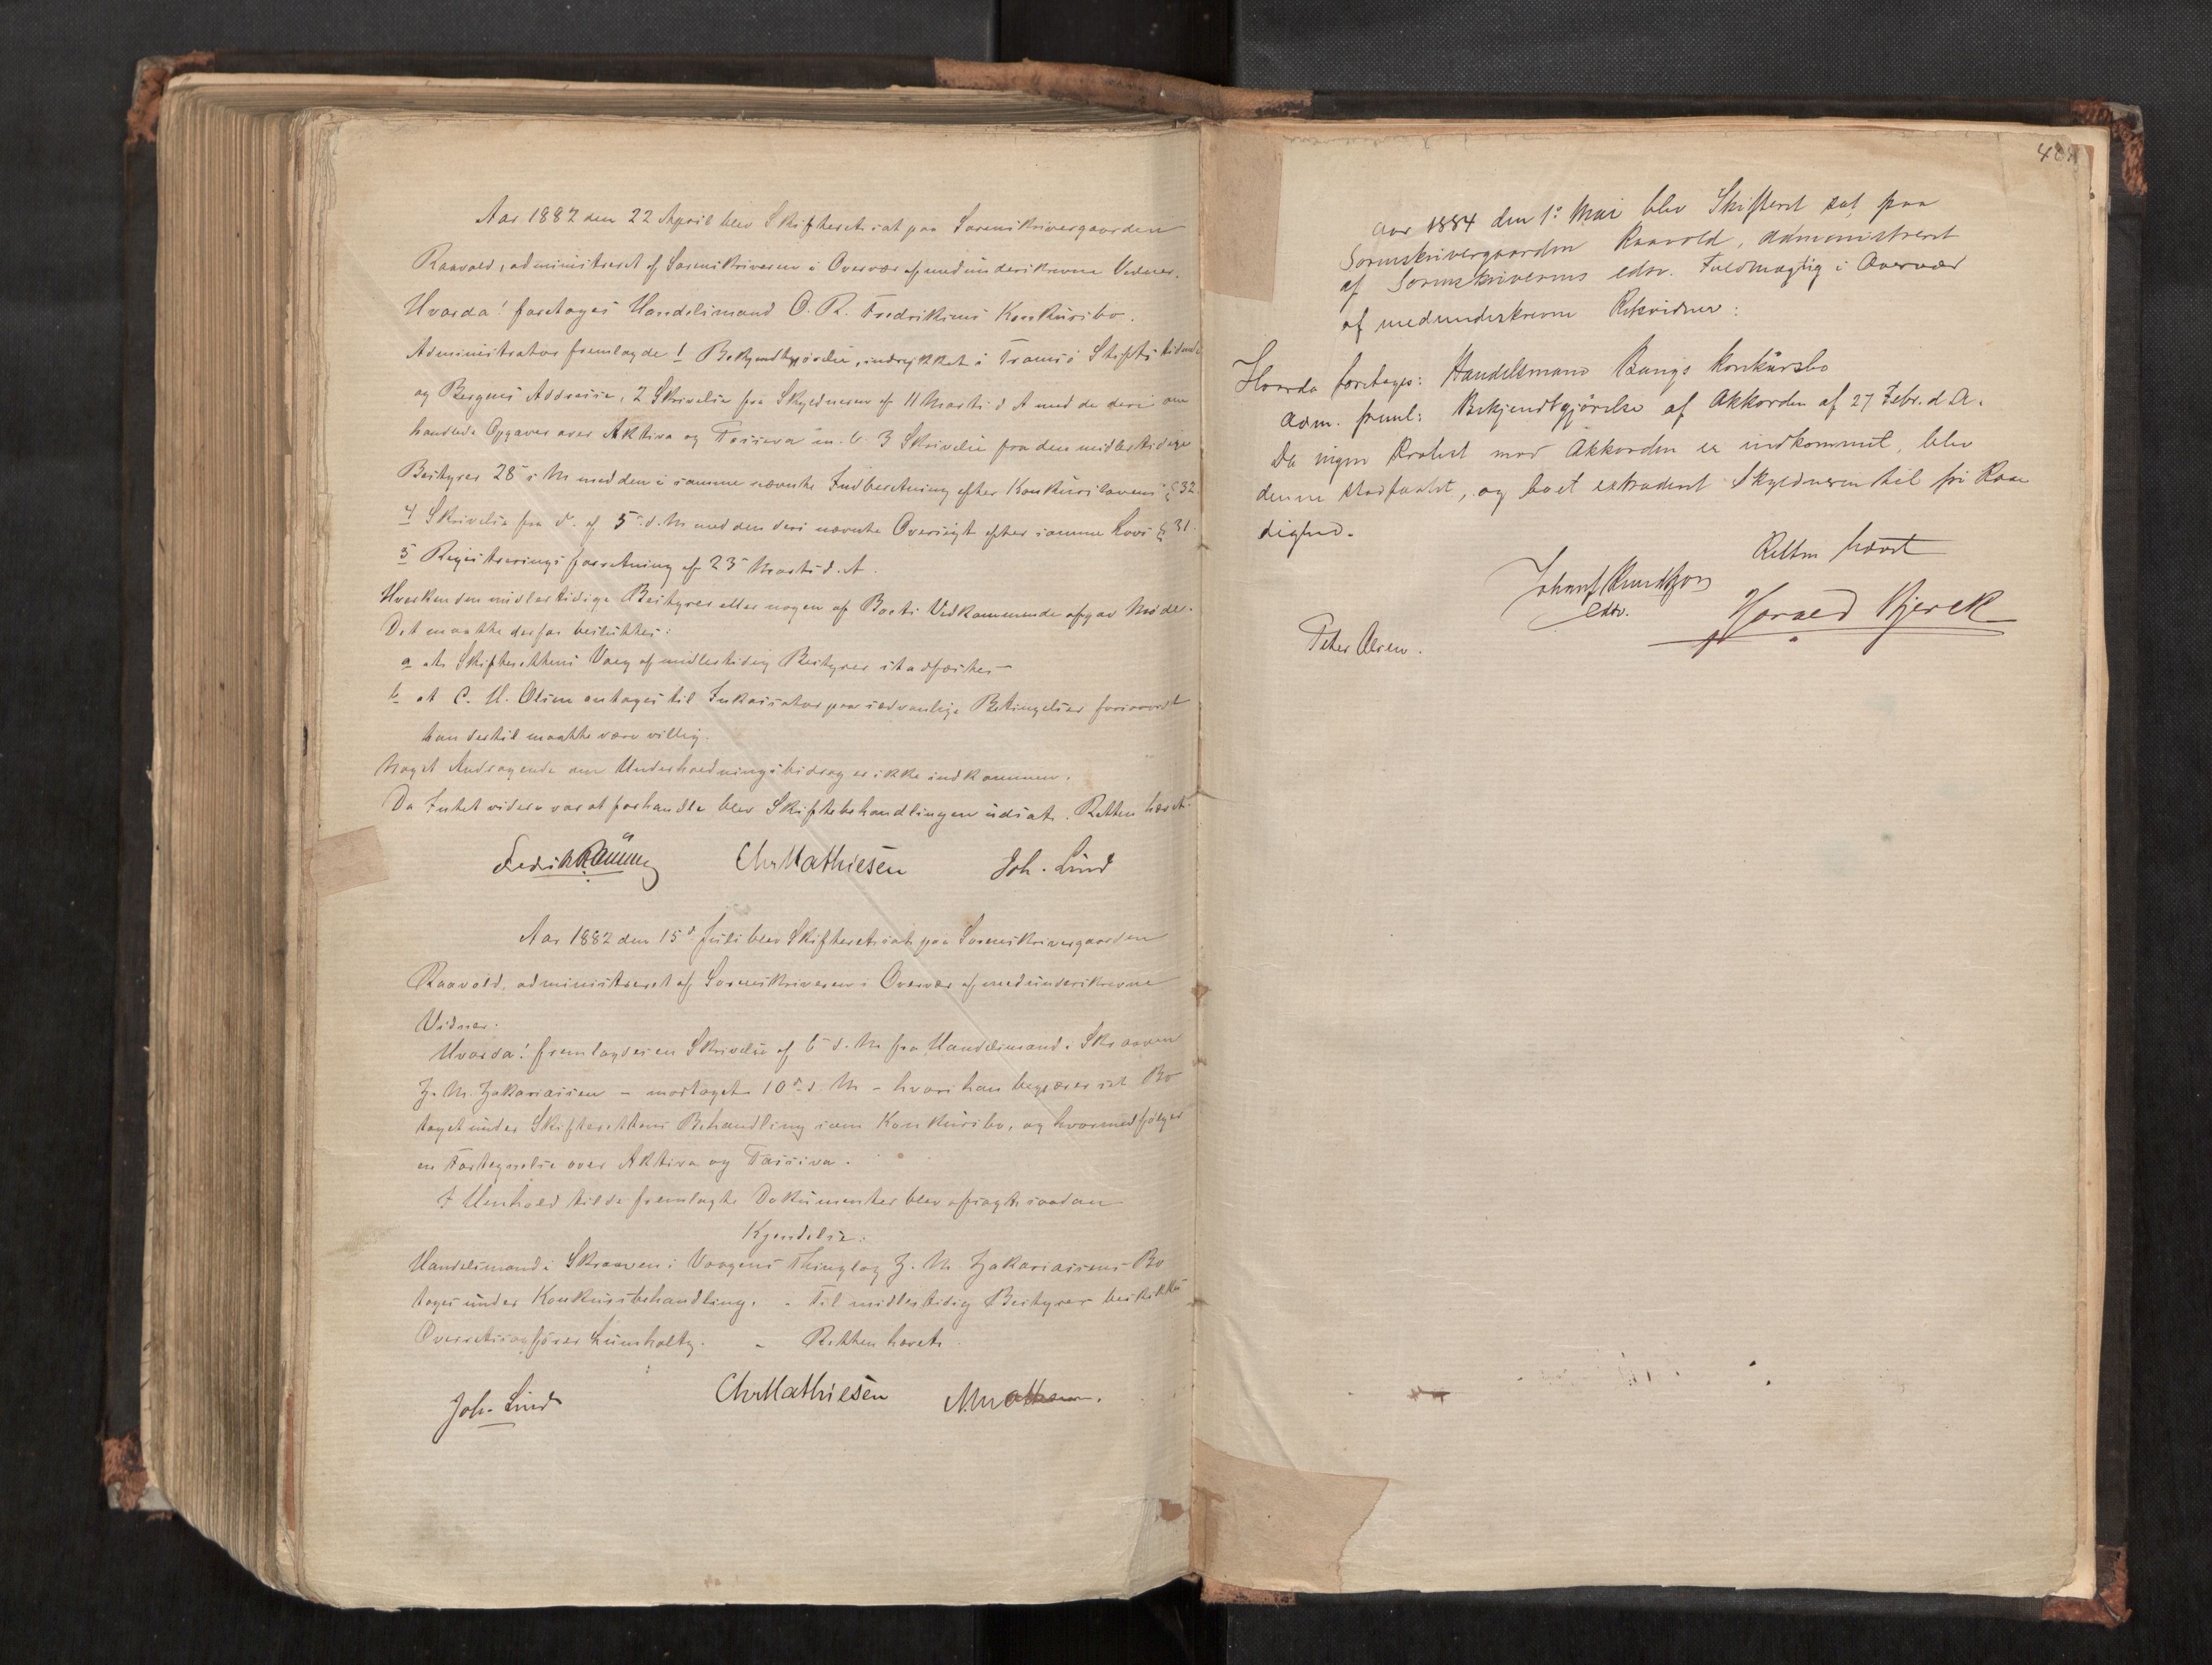 Aar 1882 den 22 April blev Skifteret sat paa Sorenskrivergaarden
Raavold, administreret af Sorenskriveren i Overvær af medunderskrevne Vidner.
Hvorda! foretoges Handelsmand O. R. Fredriksens Konkursbo.
Administrator fremlagde 1 Bekjendtgjörelse, indrykket i Tromsö Stiftstidende
og Bergens Addresse, 2 Skrivelse fra Skyldneren af 11 Marts d A med de deri om
handlede Opgaver over Aktiva og Passiva m. v. 3 Skrivelse fra den midlertidige
Bestyrer 28 s M med den i samme nævnte Indberetning efter Konkurslovens § 32.
4 Skrivelse fra do. af 5 d. M med den deri nævnte Oversigt efter samme Lovs § 31.
5 Registreringsforretning af 23 Marts d. A.
Hverken den midlertidige Bestyrer eller nogen af Boets Vedkommende afgav Møde.
Det maatte derfor besluttes:
a at Skifterettens Valg af midlertidig Bestyrer stadfæstes
b at C. H. Olsen antages til Inkassator paa sædvanlige Betingelser forsaavidt
han dertil maatte være villig.
Noget Andragende om Underholdningsbidrag er ikke indkommen.
Da Intet videre var at forhandle blev Skiftebehandlingen udsat. Retten hævet
Chr Mathiesen Joh. Lind
Aar 1882 den 15de Juli blev Skifteret sat paa Sorenskrivergaarden
Raavold, administreret af Sorenskriveren i Overvær af medunderskrevne
Vidner.
Hvorda! fremlagdes en Skrivelse af 6 d. M fra Handelsmand i Skraaven
Z. M. Zakariassen - modtaget 10de d. M - hvori han begjærer sit Bo
taget under Skifterettens Behandling som Konkursbo, og hvormed fölger
en Fortegnelse over Aktiva og Passiva.
I Henhold til de fremlagte Dokumenter blev afsagt saadan
Kjendelse:
Handelsmand i Skraaven i Vaagens Thinglag Z. M. Zakariassens Bo
tages under Konkursbehandling. - Til midlertidig Bestyrer beskikkes
Overretssagförer Lumholtz. - Retten hævet
Joh. Lind Chr Mathiesen
Aar 1884 den 1ste Mai blev Skifteret sat paa
Sorenskrivergaarden Raavold, administreret
af Sorenskriverens edsv. Fuldmægtig i Overvær
af medunderskrevne Retsvidner:
Hvorda foretoges: Handelsmand Bangs Konkursbo
Adm. freml: Bekjendtgjörelse af Akkorden af 27 Febr. d. A.
Da ingen Protest mod Akkorden er indkommet, blev
denne stadfæstet, og boet extraderet Skyldneren til fri Raa
dighed.
Retten hævet
edsv. Harald Bjerck
Peter Olsen.